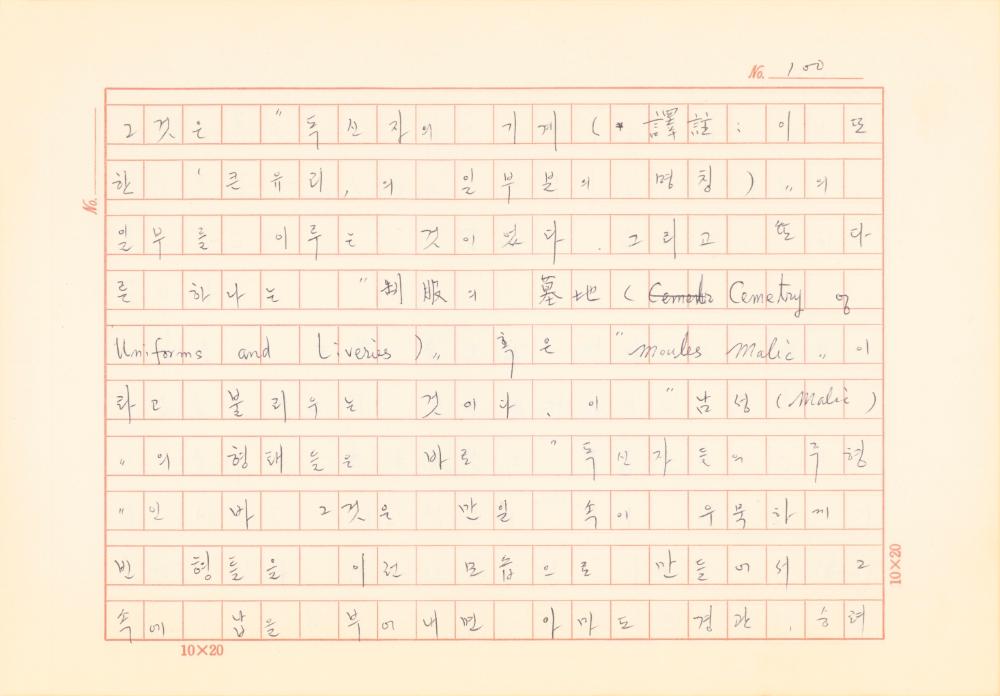 No. 100
No.
그것은 "독신자의 기계 (* 譯註 : 이 또
한 '큰 유리'의 일부분의 명칭)"의
일부를 이루는 것이었다. 그리고 또 다
른 하나는 "制服의 墓地 (Cemetry of
Uniforms and Liveries)" 혹은 "moules malic"이
라고 불리우는 것이다. 이 "남성(malic)
"의 형태들은 바로 "독신자들의 주형
"인 바 그것은 만일 속이 우묵하게
빈 형틀을 이런 모습으로 만들어서 그
속에 납을 부어내면 아마도 경관, 승려
10×20
10×20